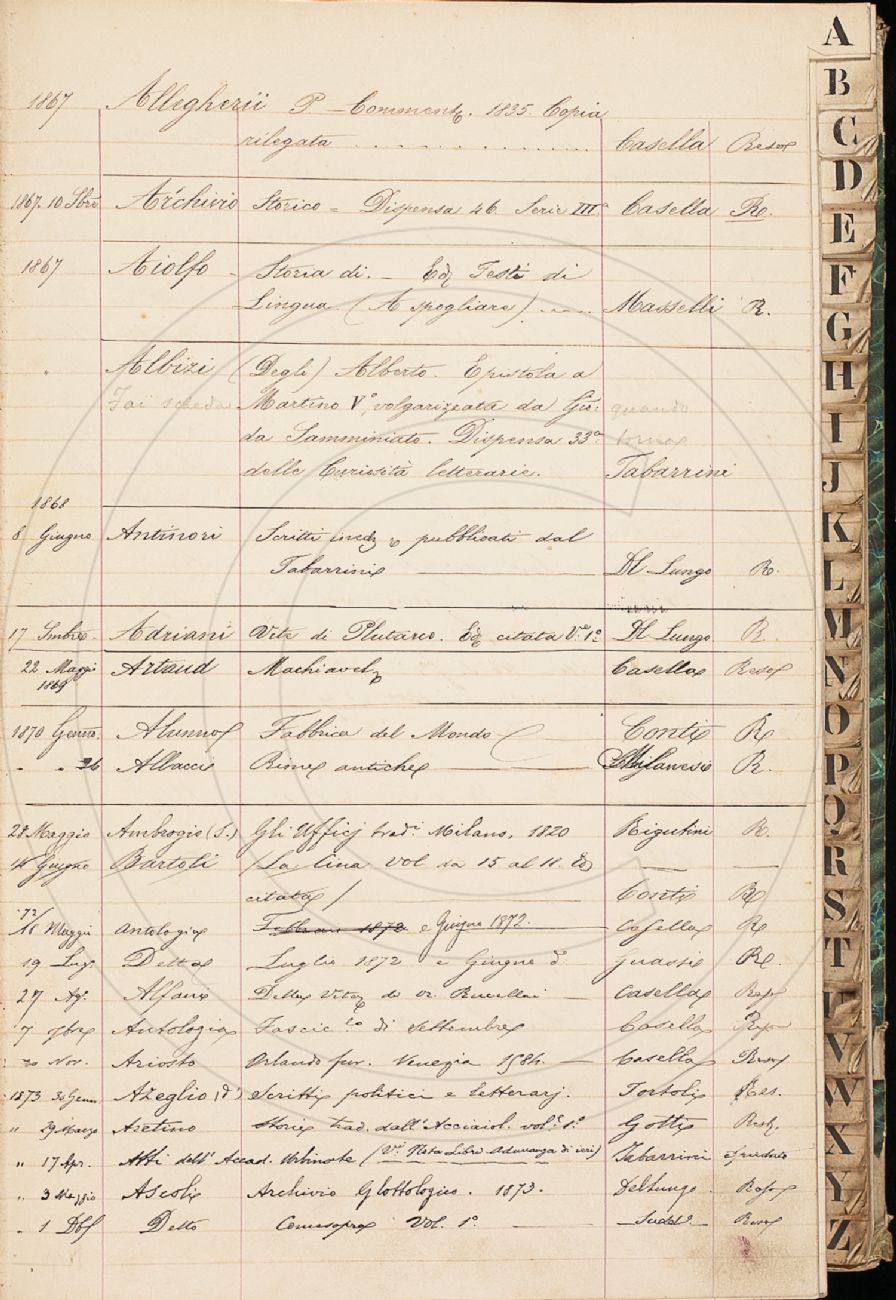 1867 Allegherii P. - Comment. 1835. Copia
rilegata . . . . . . . . . . . . . . Casella Reso
1867. 10 Sbre Archivio Storico = Dispensa 46. Serie IIIa Casella R.
1867 Aiolfo - Storia di. - Ed Testi di
Lingua. (A spogliare) Masselli R.
Albizi (Degli) Alberto. Epistola a
Fai scheda Martino Vo, volgarizzata da Gio: quando
da Samminiato. Dispensa 33a torna
delle Curiosità letterarie. Tabarrini
1868
8 Giugno Antinori Scritti ined e pubblicati dal
Tabarrini Del Lungo R.
17 Smbre. Adriani Vite di Plutarco. Ed citata V. 1o Del Lungo R.
22 Maggio Artaud Machiavel Casella Reso
1869
1870 Genno. Alunno Fabbrica del Mondo Conti R
" " 26 Allacci Rime antiche Milanesi R.
28 Maggio Ambrogio (S.) Gli Ufficj trad. Milano, 1820 Rigutini R.
14 Giugno Bartoli (La Cina Vol da 15 al 18. Ed
citata / Conti R
72/
18 Maggio Antologia Febbraio 1872 e Giugno 1872. Casella R
19 Lug. Detta Luglio 1872 e Giugno do guassi R.
27 Ag. Alfani Della Vita di Or. Rucellai Casella Reso
7 7bre Antologia Fascic.lo di Settembre Casella Reso
Nov. Ariosto Orlando fur. Venezia 1584. Casella Reso
1873 30 Genn. Azeglio (d') Scritti politici e letterarj. Tortoli Res.
" 29 Marzo Aretino Storie trad. dall'Acciaiol. vol. 1o Gotti Rest.
" 17 Apr. Atti dell'Accad. Urbinate (Va. Nota Libro adunanza di ieri) Tabarrini
" 3 Maggio Ascoli Archivio Glottologico. 1873. Del Lungo Reso
" 1 Detto Comesopra Vol. 1o. Sudo. Reso
A
B
C
D
E
F
G
H
I
J
K
L
M
N
O
P
Q
R
S
T
U
V
W
X
Y
Z